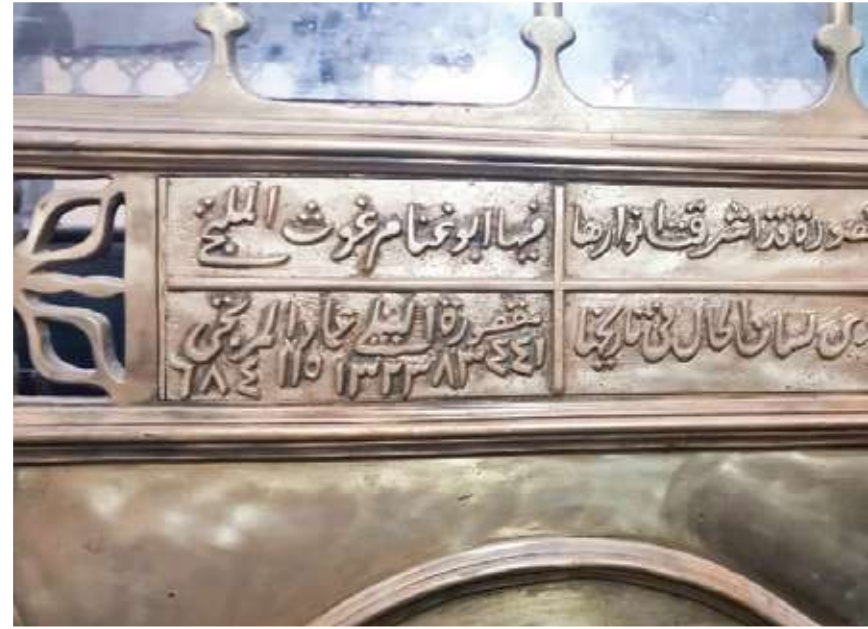 قصورة قد اشرقت انوارها فيها ابو غنام غوث الملتجى
من لسان الحال فى تاريخها مقصورة يقاد المرتجى
٤٤١ ٨٣ ١٣٢٣ ١١٥ ٦٨٤